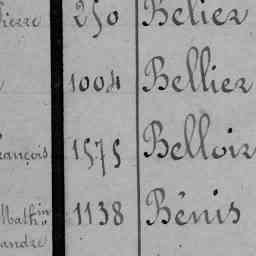 Pierre 250 Belier
1004 Bellier
rançois 1575 Belloir
Mathin 1138 Bénis
andre